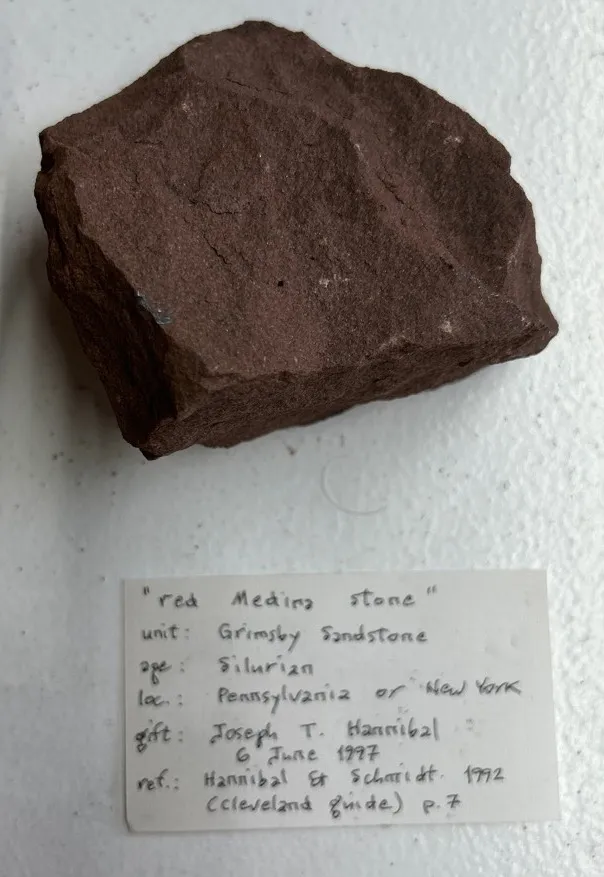 "red Medina stone"
unit: Grimsby Sandstone
age: Silurian
loc.: Pennsylvania or New York
gift: Joseph T. Hannibal
6 June 1997
ref.: Hannibal & Schmidt 1992
(Cleveland guide) p. 7